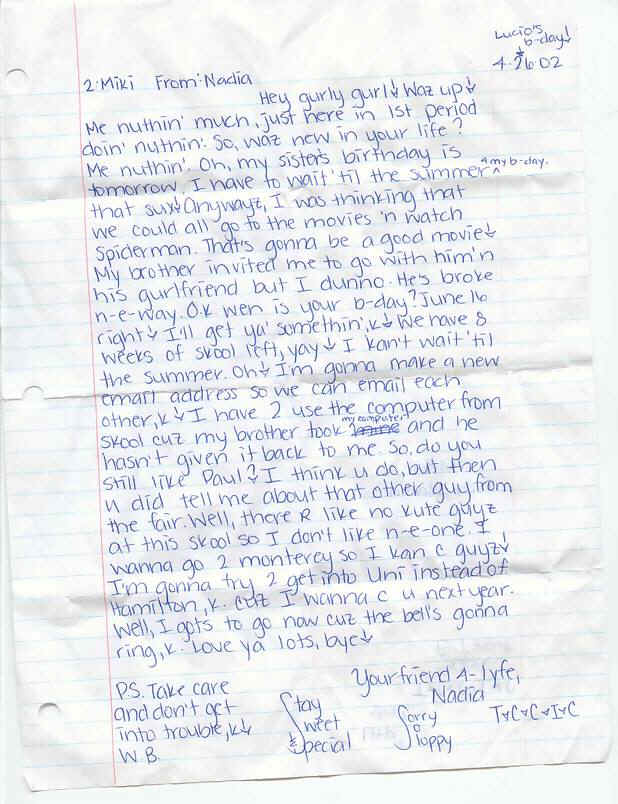 Lucio's
b-day↓
4.26.02
2:Miki From:Nadia
Hey gurly gurl↓ Waz up↓
Me nuthin' much, just here in 1st period
doin' nuthin'. So, waz new in your life?
Me nuthin'. Oh, my sister's birthday is
4 my b-day.
tomorrow, I have to wait 'til the summer^
that sux↓ Anywayz, I was thinking that
we could all go to the movies 'n watch
Spiderman. That's gonna be a good movie↓
My brother invited me to go with him 'n
his gurlfriend but I dunno. He's broke
n-e-way. O.k wen is your b-day? June 16
right↓ I'll get ya' somethin', k↓ We have 8
weeks of skool left, yay↓ I kan't wait 'til
the summer. Oh↓ I'm gonna make a new
email address so we can email each
other, k↓ I have 2 use the computer from
my computer
skool cuz my brother took and he
hasn't given it back to me. So, do you
still like Paul? I think u do, but then
u did tell me about that other guy from
the fair. Well, there R like no kute guyz
at this skool so I don't like n-e-one. I
wanna go 2 monterey so I kan c guyz↓
I'm gonna try 2 get into Uni instead of
Hamilton, k. cuz I wanna c u next year.
Well, I gots to go now cuz the bell's gonna
ring, k. Love ya lots, bye↓
Your friend 4-lyfe,
Nadia
P.S. Take care
and don't get
into trouble, k↓
W.B.
Stay
Sweet
& Special
Sorry
So
Sloppy
T♥C♥C♥I♥C